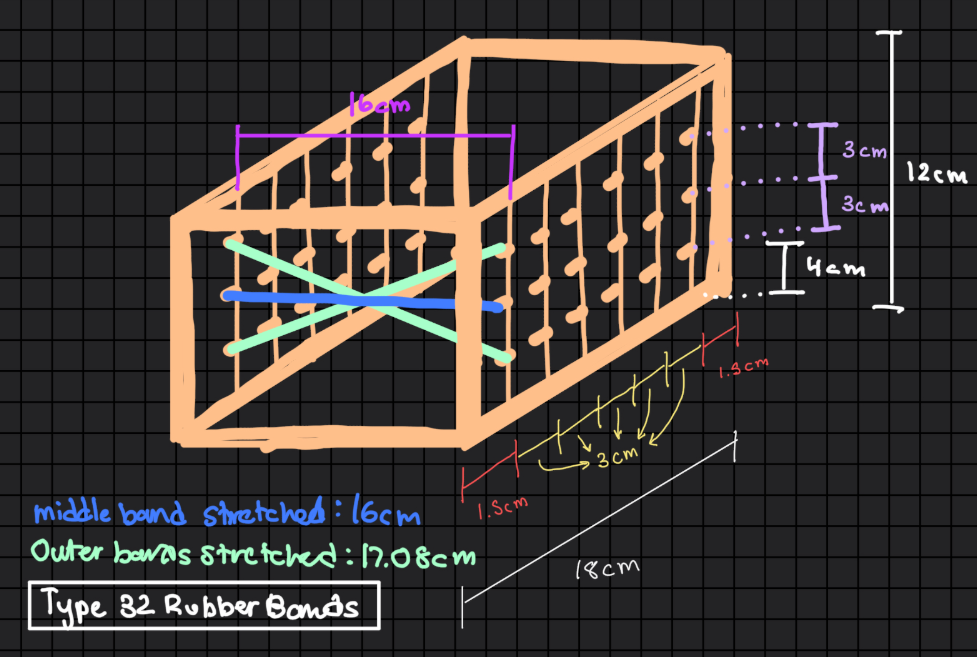 16cm
3cm
12cm
3cm
4cm
1.5cm
3cm
1.5cm
18cm
middle band stretched: 16cm
Outer bands stretched: 17.08cm
Type 32 Rubber Bands